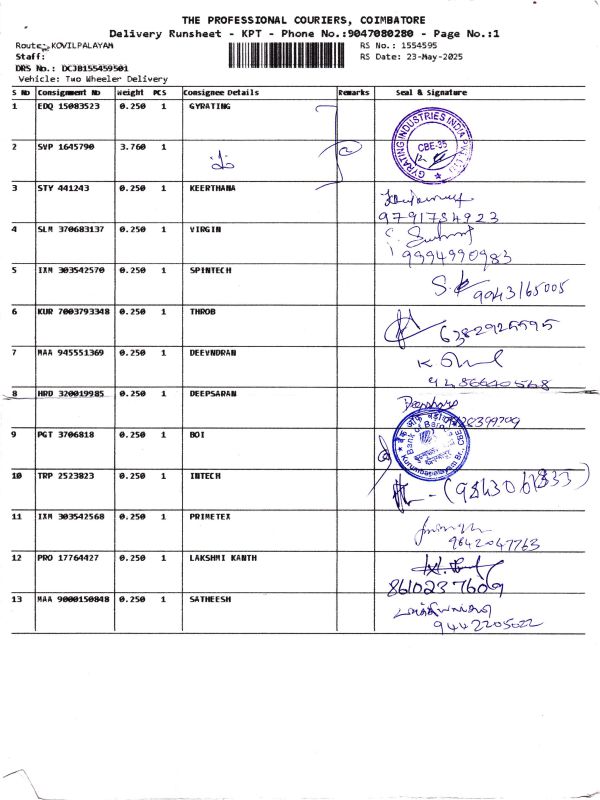 THE PROFESSIONAL COURIERS, COIMBATORE
Delivery Runsheet - KPT - Phone No.:9047080280 - Page No.:1
Route: KOVILPALAYAM RS No.: 1554595
Staff: RS Date: 23-May-2025
DRS No.: DCJB155459501
Vehicle: Two Wheeler Delivery
S No Consignment No Weight PCS Consignee Details Remarks Seal & Signature
1 EDQ 15083523 0.250 1 GYRATING
GYRATING INDUSTRIES INDIA PVT LTD
CBE-35
2 SVP 1645790 3.760 1
3 STY 441243 0.250 1 KEERTHANA
9791754923
4 SLM 370683137 0.250 1 VIRGIN
9994990983
5 IXM 303542570 0.250 1 SPINTECH
S. 9943165005
6 KUR 7003793348 0.250 1 THROB
7 MAA 945551369 0.250 1 DEEVNDRAN
K
8 HRD 320019985 0.250 1 DEEPSARAN
9 PGT 3706818 0.250 1 BOI
Bank of Baroda
10 TRP 2523823 0.250 1 INTECH
11 IXM 303542568 0.250 1 PRIMETEX
9842047763
12 PRO 17764427 0.250 1 LAKSHMI KANTH
8610237609
13 MAA 9000150848 0.250 1 SATHEESH
9442205022